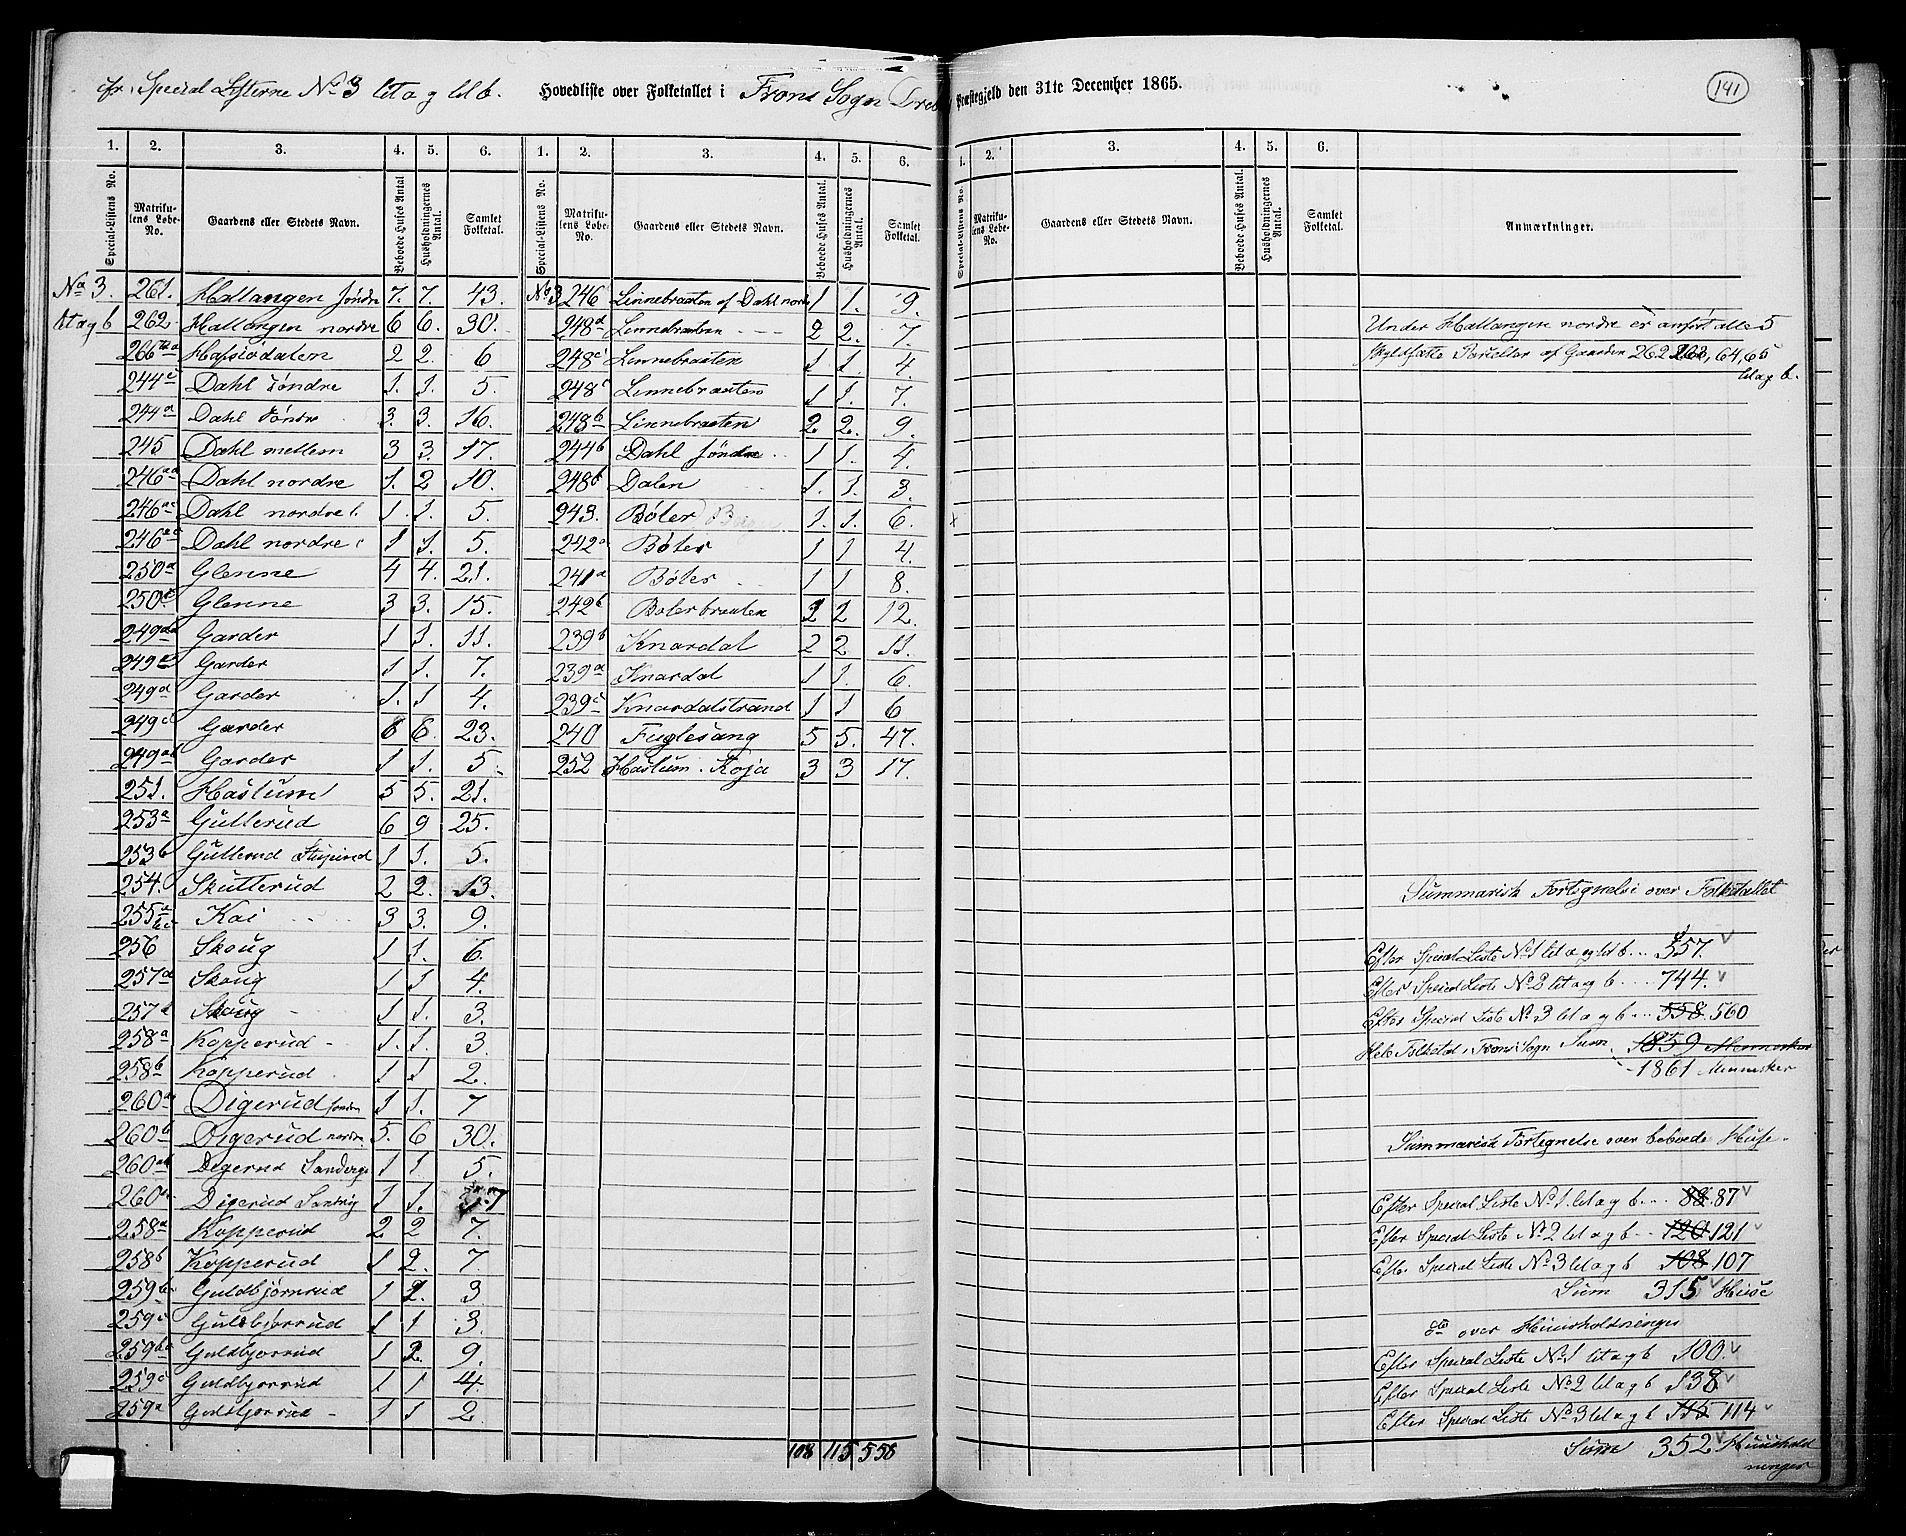 cfr. Special Listerne No 3 lit a og lit b. Hovedliste over Folketallet i Frons Sogn
Præstegjeld den 31te December 1865.
141
1. 2. 3. 4. 5. 6. 1. 2. 3. 4. 5. 6.
Special-Listens No. Matrikulens Løbe-No. Gaardens eller Stedets Navn. Beboede Huses Antal. Husholdningernes Antal. Samlet Folketal. Special-Listens No. Matrikulens Løbe-No. Gaardens eller Stedets Navn. Beboede Huses Antal. Husholdningernes Antal. Samlet Folketal.
No 3. 261. Hallangen søndre 7. 7. 43.
lit a og b 262 Hallangen nordre 6 6. 30.
266 Hafsiodalen 2 2. 6
244c Dahl søndre 1. 1. 5.
244a Dahl søndre 3. 3. 16.
245 Dahl mellem 3 3. 17.
246aa Dahl nordre 1. 2 10.
246 Dahl nordre 1. 1. 5.
246 Dahl nordre 1 1. 5.
250a Glenne 4 4. 21.
250 Glenne 3 3. 15.
249 Garder 1 1. 11.
249 Garder 1 1. 7.
249d Garder 1. 1 4.
249 Garder 6 6. 23.
249ab Garder 1 1. 5.
251. Haslum 5 5. 21.
253a Gullerud 6 9 25.
253b Gullerud 1 1. 5.
254. Skutterud 2 2. 13
255 Kai 3 3. 9.
256 Skoug 1 1. 6.
257a Skoug 1 1 4.
257 Skoug 1 1. 3.
258a Kopperud 1. 1. 3.
258b Kopperud 1 1 2.
260 Digerud søndre 1 1. 7
260b Digerud nordre 5. 6 30.
260ab Digerud 1 1 5.
260 Digerud Sandvig 1 1. 7
258a Kopperud 2 2 7.
258b Kopperud 1 2. 7.
259 Guldbjørnrud 1 2. 3
259c Guldbjørrud 1 1 3.
259 Guldbjørrud 1 2. 9.
259c Guldbjørrud 1 1 4.
259a Guldbjørrud 1 1 2.
No 3 246 Linnebraaten af Dahl nordre 1 1. 9.
248d Linnebraaten 2 2. 7.
248 Linnebraaten 1 1. 4.
248c Linnebraaten 1 1. 7.
248b Linnebraaten 2 2. 9.
244b Dahl søndre 1 1. 4.
248b Dalen 1. 1. 3.
243. Bøler 1. 1. 6.
242a Bøler 1 1 4.
241a Bøler 1 1 8.
242b Bølerbraaten 2 2 12.
239b Knardal 2 2 11.
239a Knardal 1 1. 6.
239c Knardalstrand 1 1 6
240 Fuglesang 5 5. 47.
252 Haslum Koja 3 3 17.
108 115 558
1. 2. 3. 4. 5. 6.
Special-Listens No. Matrikulens Løbe-No. Gaardens eller Stedets Navn. Beboede Huses Antal. Husholdningernes Antal. Samlet Folketal. Anmærkninger.
Under Hallangen nordre er anført alle 5
skyldsatte Parceller af Gaarden 262 263, 64, 65
lit a og b.
Summarisk Fortegnelse over Folketallet
Efter Special Liste No 1 lit a og lit b 557.
Efter Special Liste No 2 lit a og b 744.
Efter Special Liste No 3 lit a og b 558. 560
Hele Folketal i Frons Sogn Sum 1859 Mennesker
1861 Mennesker
Summarisk Fortegnelse over beboede Huse.
Efter Special Liste No 1. lit a og b 88. 87
Efter Special Liste No 2 lit a og b 120 121
Efter Special Liste No 3 lit a og b 108 107
Sum 315 Huse
do over Huusholdninger
Efter Special Liste No 1 lit a og b 100.
Efter Special Liste No 2 lit a og b 138
Efter Special Liste No 3 lit a og b 115 114
Sum 352 Huushold
ninger